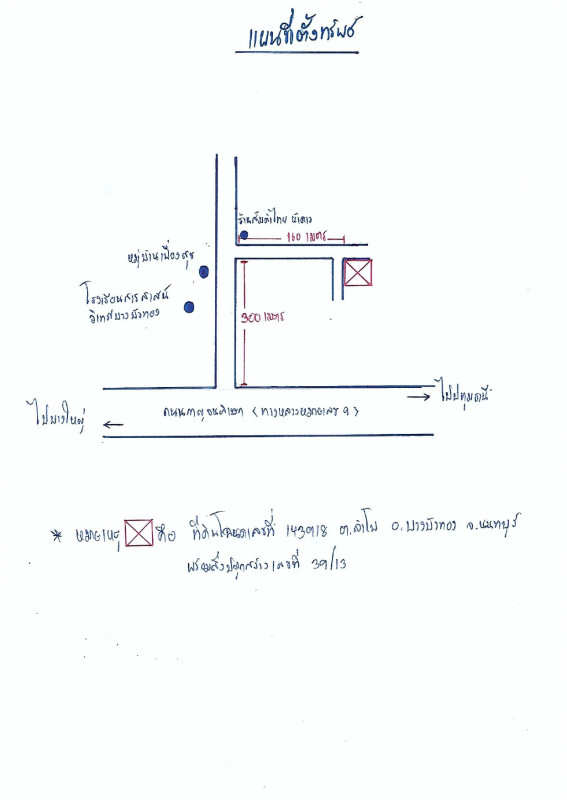 แผนที่ตั้งทรัพย์
ร้านส้มตำไทย นำดาว
160 เมตร
หมู่บ้านเฟื่องสุข
โรงเรียนสารสาสน์
วิเทศบางบัวทอง
300 เมตร
ไปปทุมธานี
ถนนกาญจนาภิเษก (ทางหลวงหมายเลข 9)
ไปบางใหญ่
* หมายเหตุ คือ ที่ดินโฉนดเลขที่ 143918 ต.ลำโพ อ.บางบัวทอง จ.นนทบุรี
พร้อมสิ่งปลูกสร้างเลขที่ 39/13